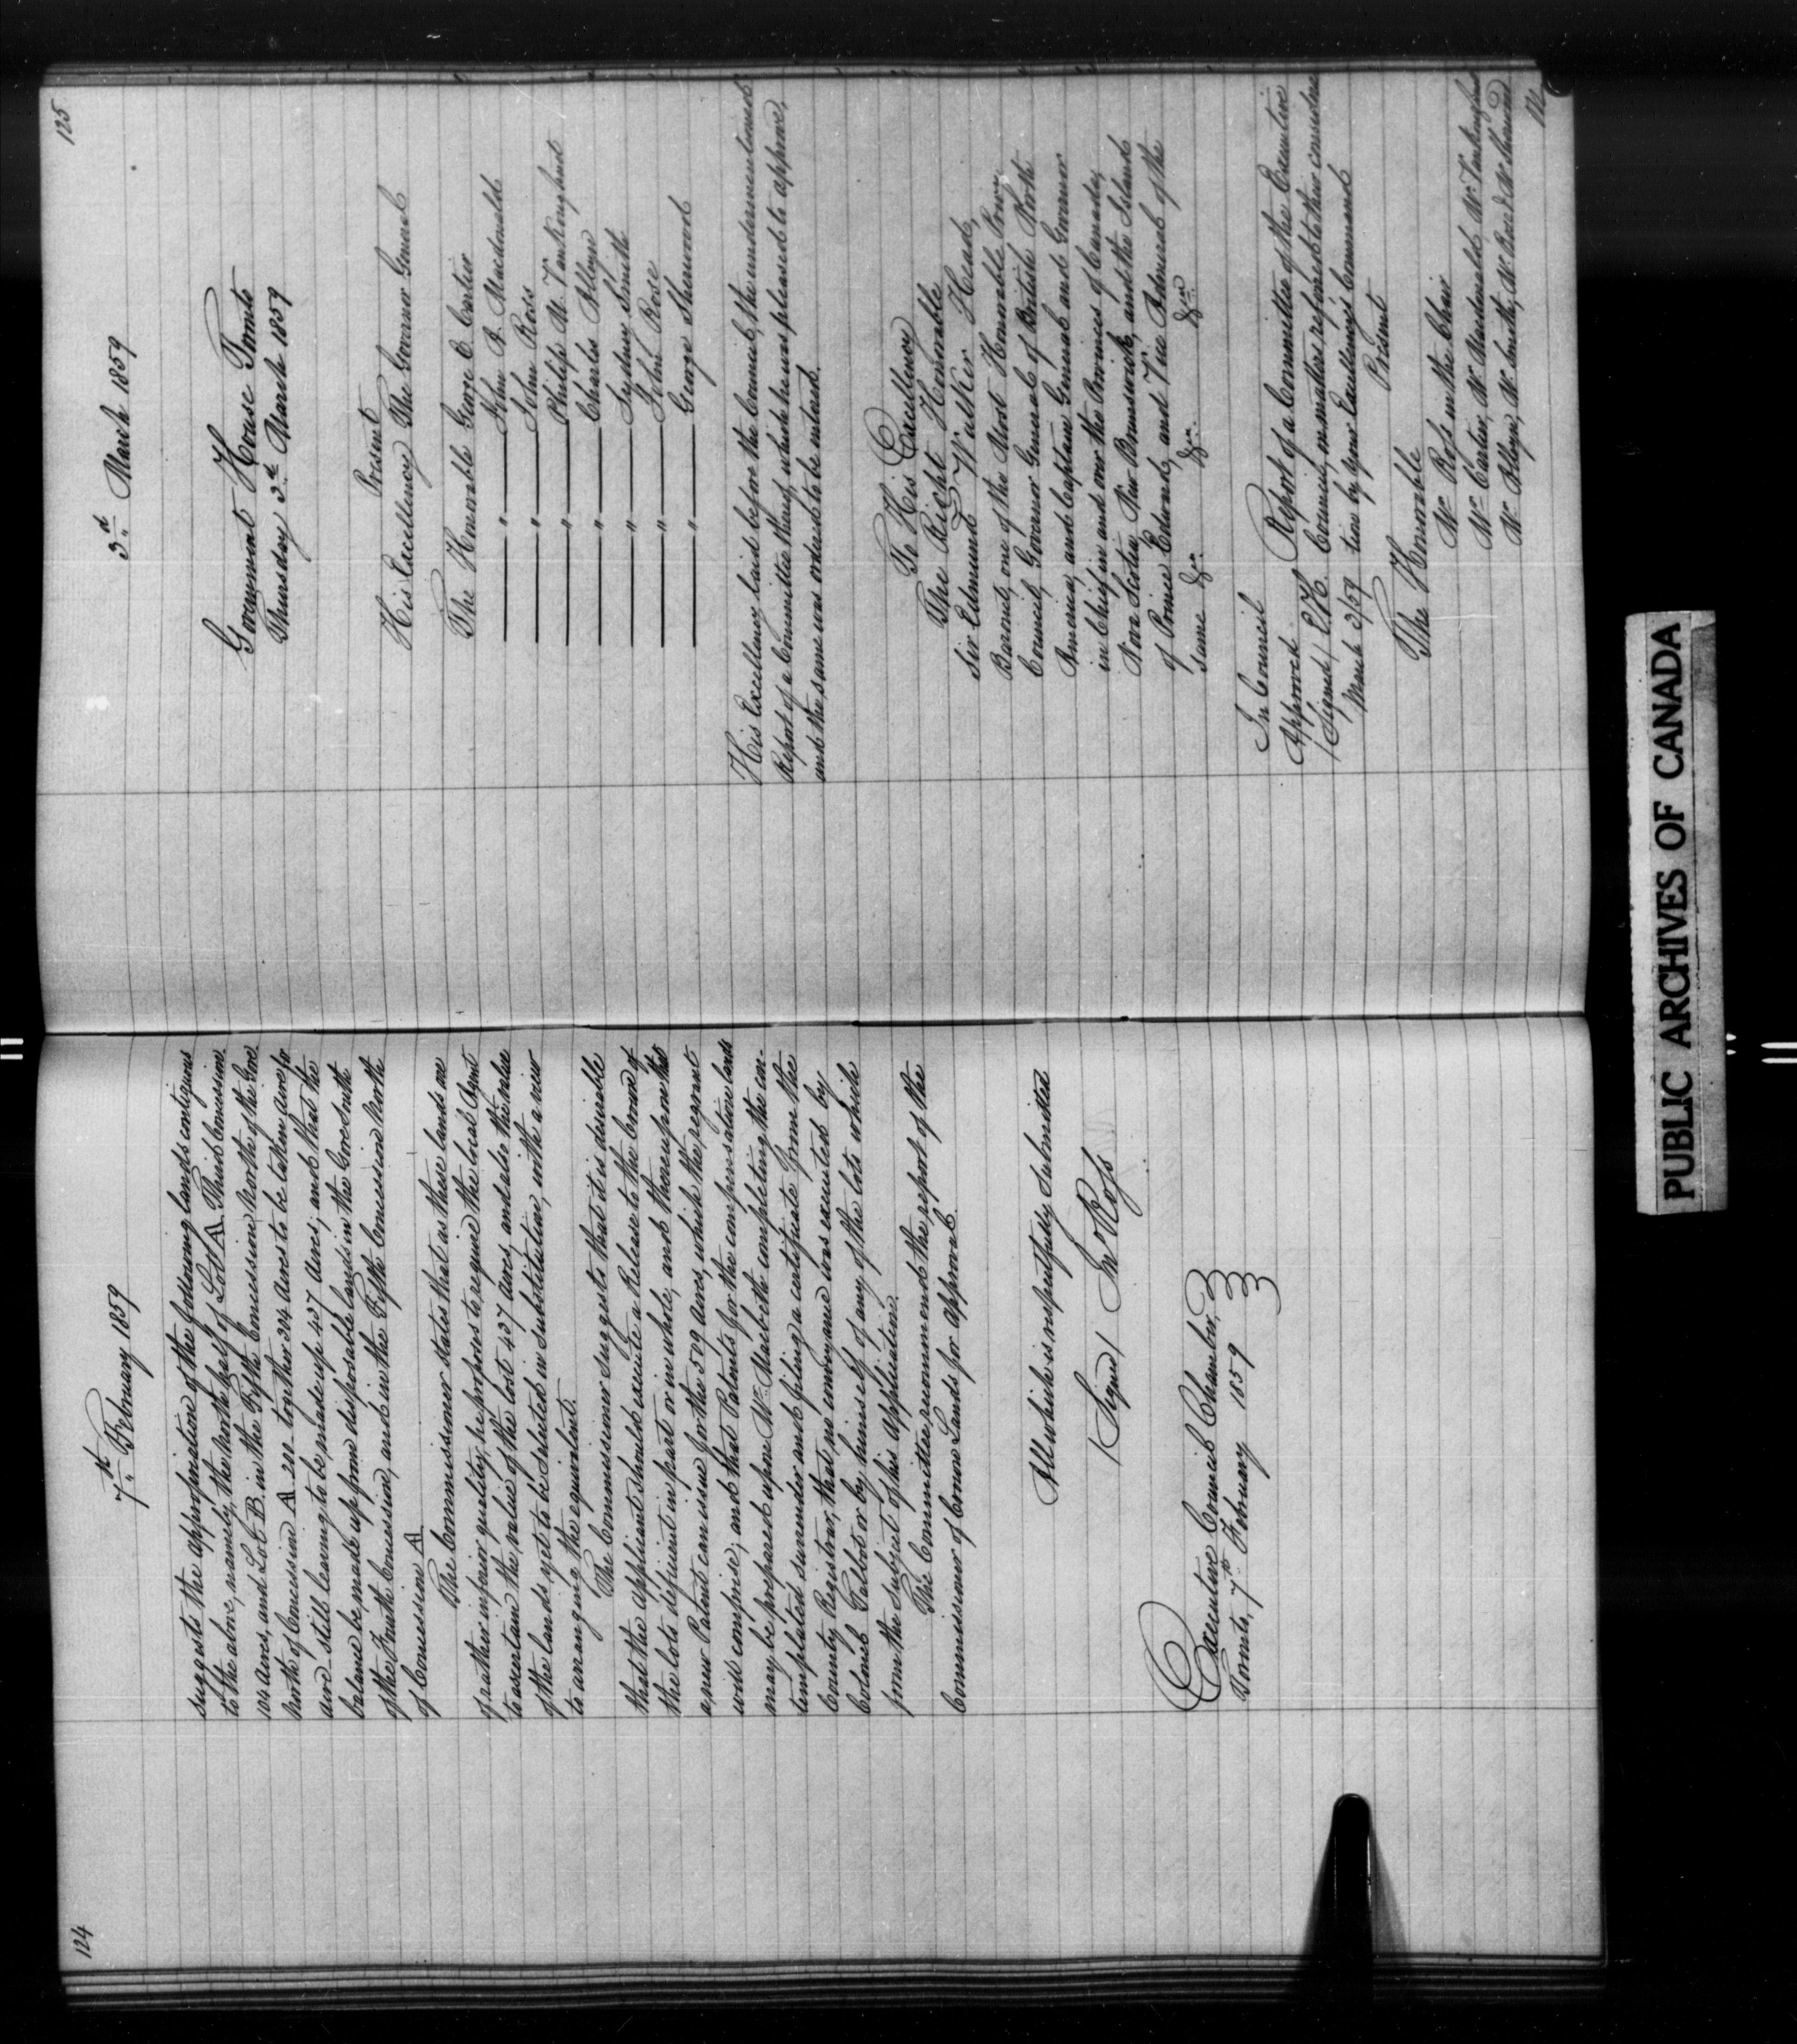 124
7th February 1859
suggests the appropriation of the following lands contiguous
to the above, namely, the North half of Lot A. Third Concession
104 Acres, and Lot B. in the Fifth Concession North of the Gore
North of Concession A 200 together 304 Acres to be taken acre for
acre still leaving to be made up 437 Acres; and that the
balance be made up from disposable lands in the Gore South
of the Fourth Concession, and in the Fifth Concession North
of Concession A
The Commissioner states that as these lands are
of rather inferior quality, he proposes to require the local Agent
to ascertain the value of the lost 437 Acres, and also the value
of the lands yet to be selected in substitution, with a view
to arranging the equivalent.
The Commissioner suggests that it is desirable
that the applicant should execute a Release to the Crown of
the lots deficient in part or in whole, and thereupon that
a new Patent can issue for the 509 Acres, which the regrant
will comprise; and that Patents for the compensation lands
may be prepared upon Mr Macbeth completing the con-
templated surrender and filing a certificate from the
County Registrar, that no conveyance was executed by
Colonel Talbot or by himself of any of the lots which
form the subject of his application.
The Committee recommend the report of the
Commissioner of Crown Lands for approval.
All which is respectfully submitted
/Signed/ Jno Ross
Executive Council Chamber,
Toronto, 7th February 1859
125
3rd March 1859
Government House Toronto
Thursday 3rd March 1859
Present
His Excellency The Governor General
The Honorable George E Cartier
" John A. Macdonald
" John Ross
" Philip M. Vankoughnet
" Charles Alleyn
" Sydney Smith
" John Rose
" George Sherwood
His Excellency laid before the Council, the undermentioned
Report of a Committee thereof, which he was pleased to approve,
and the same was ordered to be entered.
To His Excellency
The Right Honorable
Sir Edmund Walker Head,
Baronet, one of the Most Honorable Privy
Council, Governor General of British North
America, and Captain General and Governor
in Chief in and over the Provinces of Canada,
Nova Scotia, New Brunswick, and the Island
of Prince Edward, and Vice Admiral of the
same &c. &c. &c.
In Council
Approved
/Signed/ E.H.
March 3/59
Report of a Committee of the Executive
Council, on matters referred to their considera
tion by Your Excellency's Command
Present
The Honorable
Mr Ross in the Chair
Mr Cartier, Mr Macdonald, Mr Vankoughnet
Mr Alleyn, Mr Smith, Mr Rose & Mr Sherwood
The
PUBLIC ARCHIVES OF CANADA